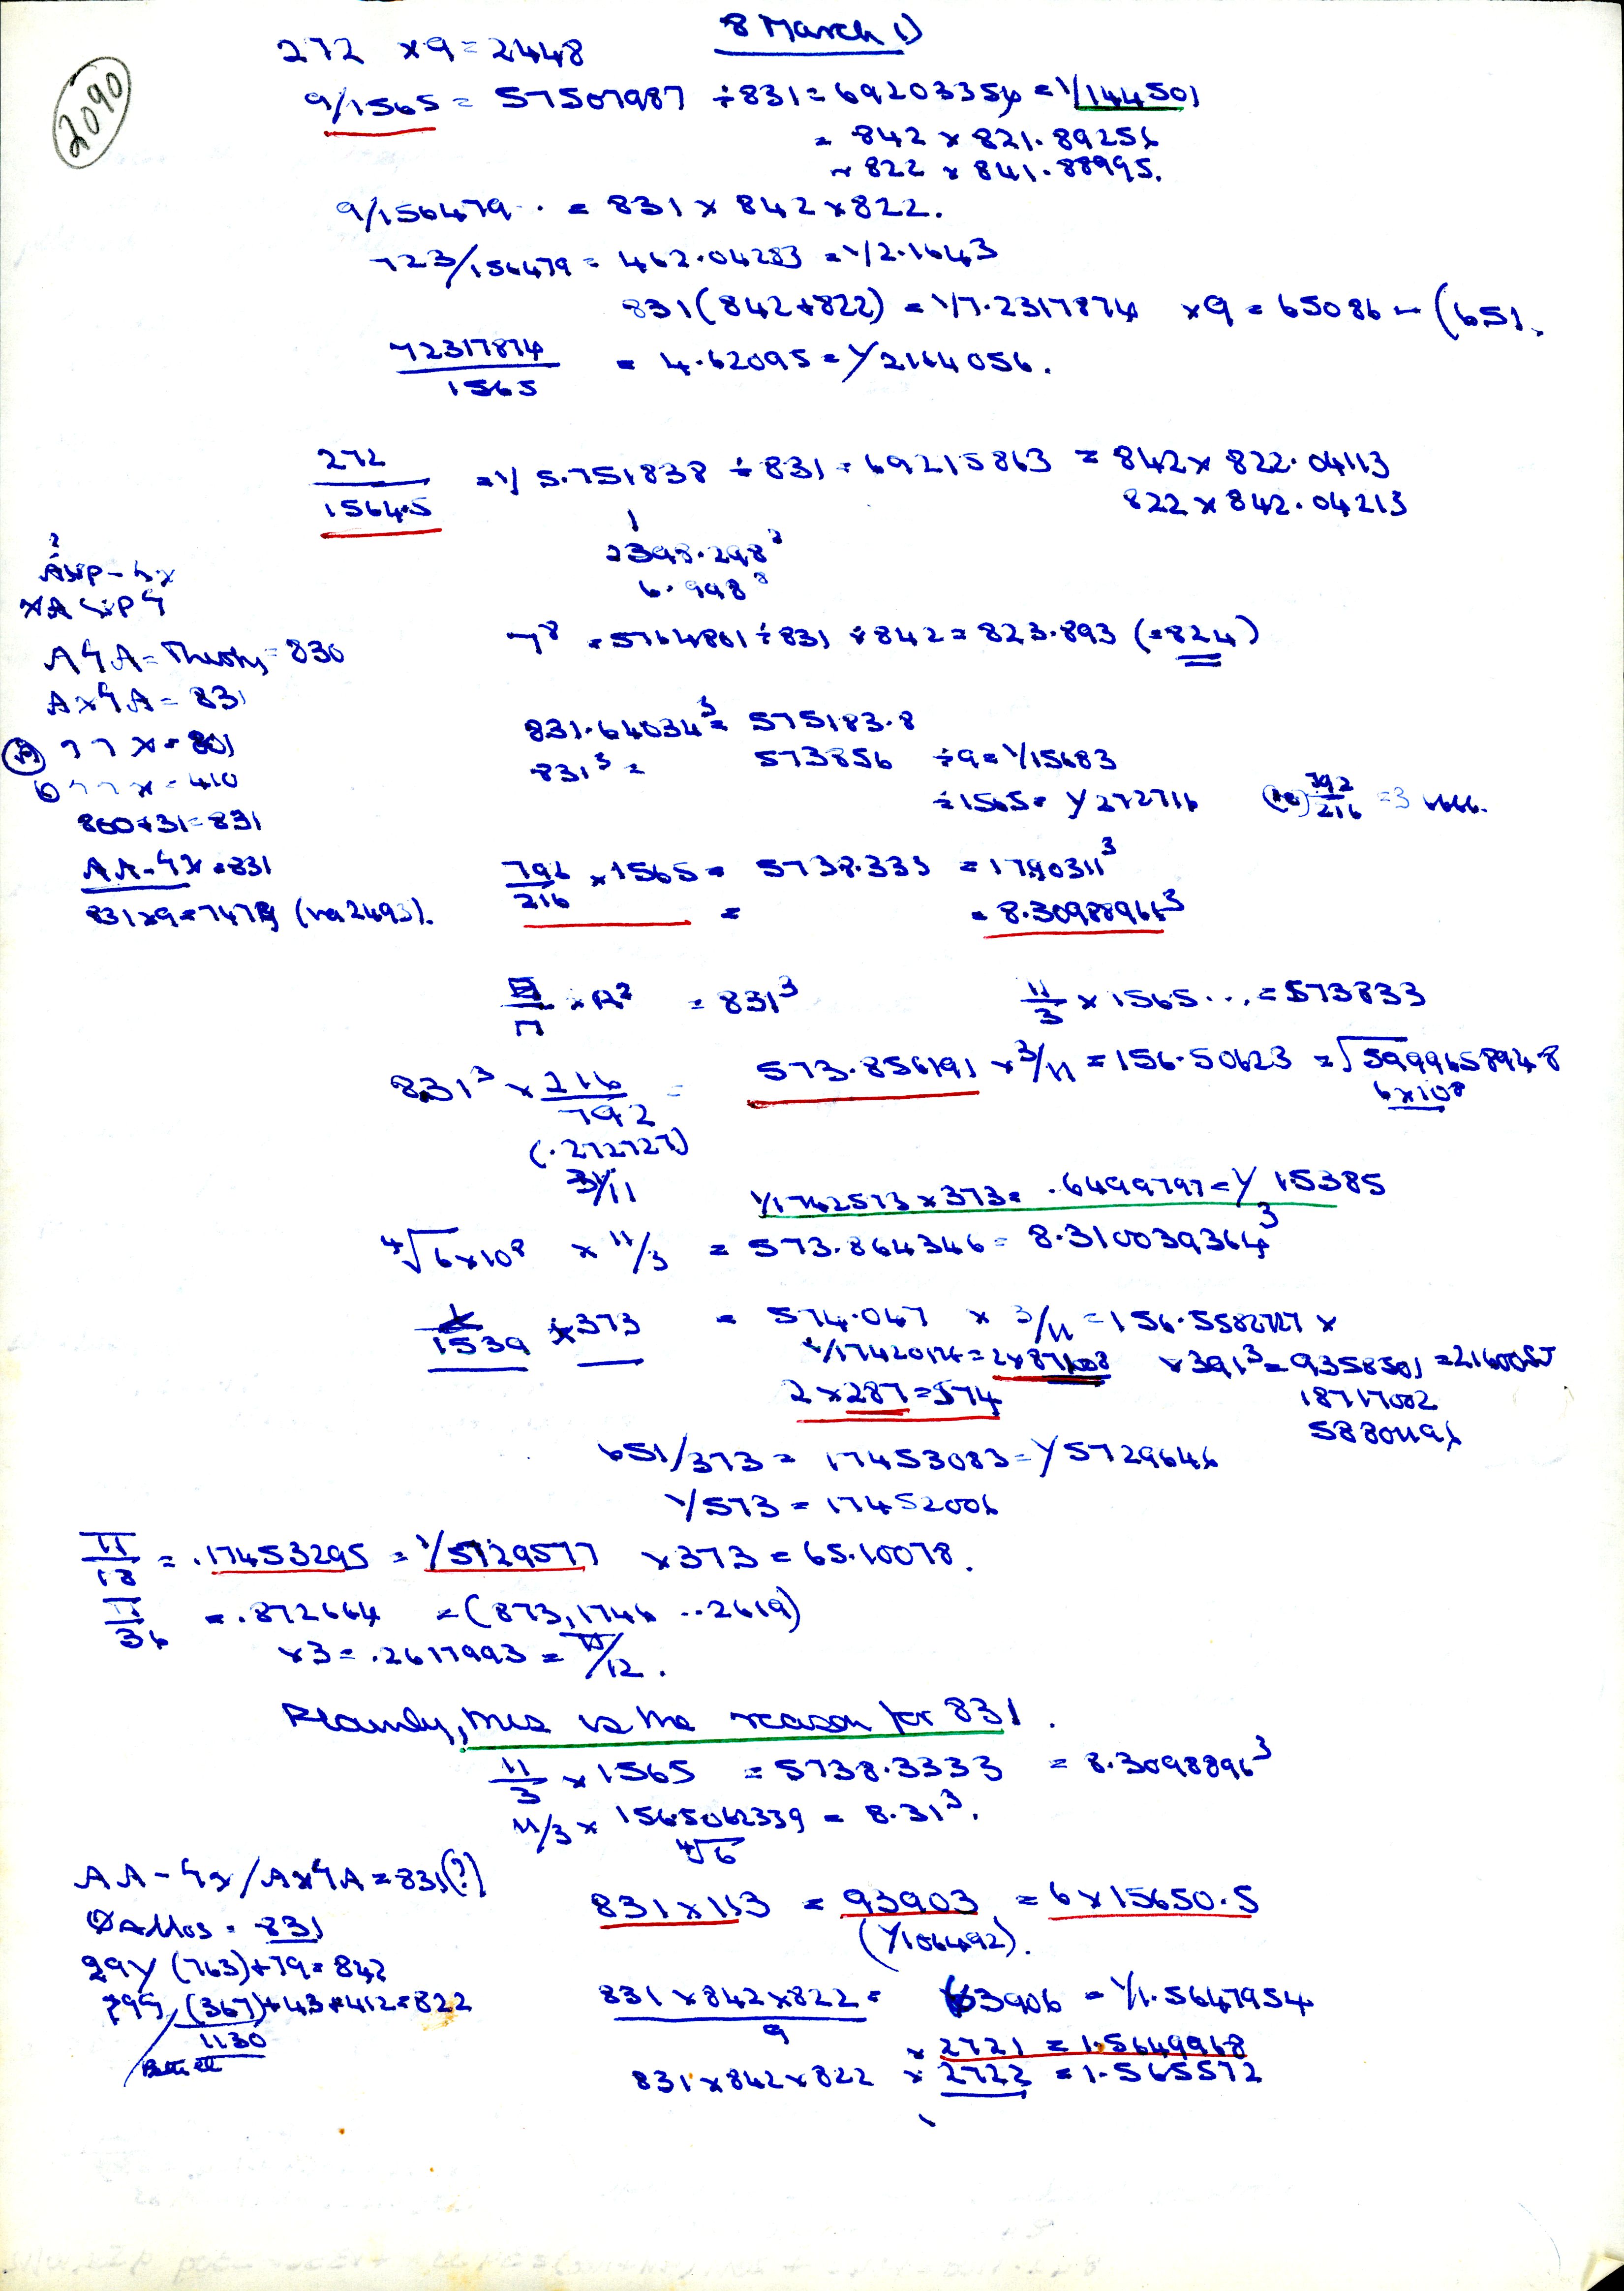 8 March 1)
2090
272 × 9 = 2448
9/1565 = 57507987 ÷ 831 = 69203354 = 1/144501
= 842 × 821.89256
~ 822 × 841.88995.
9/156479 . = 831 × 842 × 822.
723/156479 = 462.04283 = 1/2.1643
831 (842+822) = 1/7.2317874 × 9 = 65086 ~ (651.
72317874/1565 = 4.62095 = 1/2164056.
272/1564.5 = 1/5.751838 ÷ 831 = 69215863 = 842 × 822.04113
822 × 842.04213
2398.298²
6.998⁸
7⁸ = 5764801 ÷ 831 ÷ 842 = 823.893 (=824)
AYA = Thirty = 830
A×YA = 831
77 × = 801
677 × = 410
800+31=831
AA-Yx = 831
831×9=7479 (via 2493).
831.64034³ = 575183.8
831³ = 573856 ÷ 9 = 1/15683
÷ 1565 = 1/272716 792/216 = 3.666.
792/216 × 1565 = 5738.333 = 1790311³
= = 8.3098896⁣6³
× A² = 831³
11/3 × 1565 ... = 573833
831³ × 216/792 = 573.856191 × 3/11 = 156.50623 = √5999658948
6×10⁸
(.272727)
3/11
1/1742573 × 373 = .6499797 = 1/15385
⁴√6×10⁸ × 11/3 = 573.864346 = 8.310039364³
1/1539 × 373 = 574.047 × 3/11 = 156.5582727 ×
1/17420174 = 2×871008 × 391³ = 9358501 = 216005
2 × 287 = 574
18717002
5880119
651/373 = 17453083 = 1/5729646
1/573 = 17452006
π/18 = .17453295 = 1/5729577 × 373 = 65.10078.
π/36 = .872664 = (873, 1746 .. 2619)
×3 = .2617993 = π/12.
Plainly, this is the reason for 831.
11/3 × 1565 = 5738.3333 = 8.3098896³
11/3 × 156.5062339 = 8.31³.
⁴√6
AA-Yx/A×YA = 831(?)
ΦΑλλος = 831
831 × 113 = 93903 = 6 × 15650.5
(1/106492).
(763)+79 = 842
(367)+43+412=822
1130
831 × 842 × 822/9 = 63906 = 1/1.5647954
× 2721 = 1.5649968
831 × 842 × 822 × 2722 = 1.565572